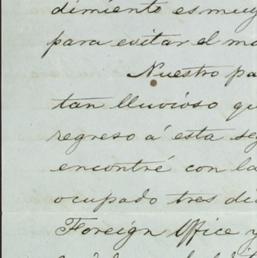 dimiento es muy
para evitar el ma
Nuestro pa
tan lluvioso qu
regreso á esta se
encontré con la
ocupado tres di
Foreign Office y